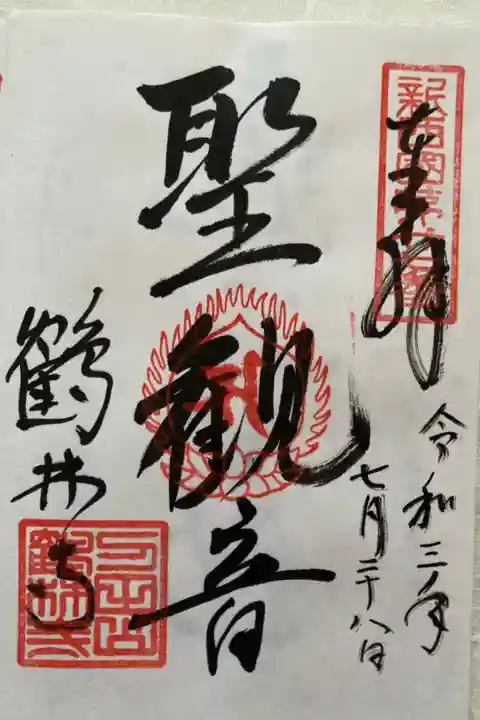 奉拝
令和三年
七月二十八日
聖観音
鶴林寺
鶴林寺